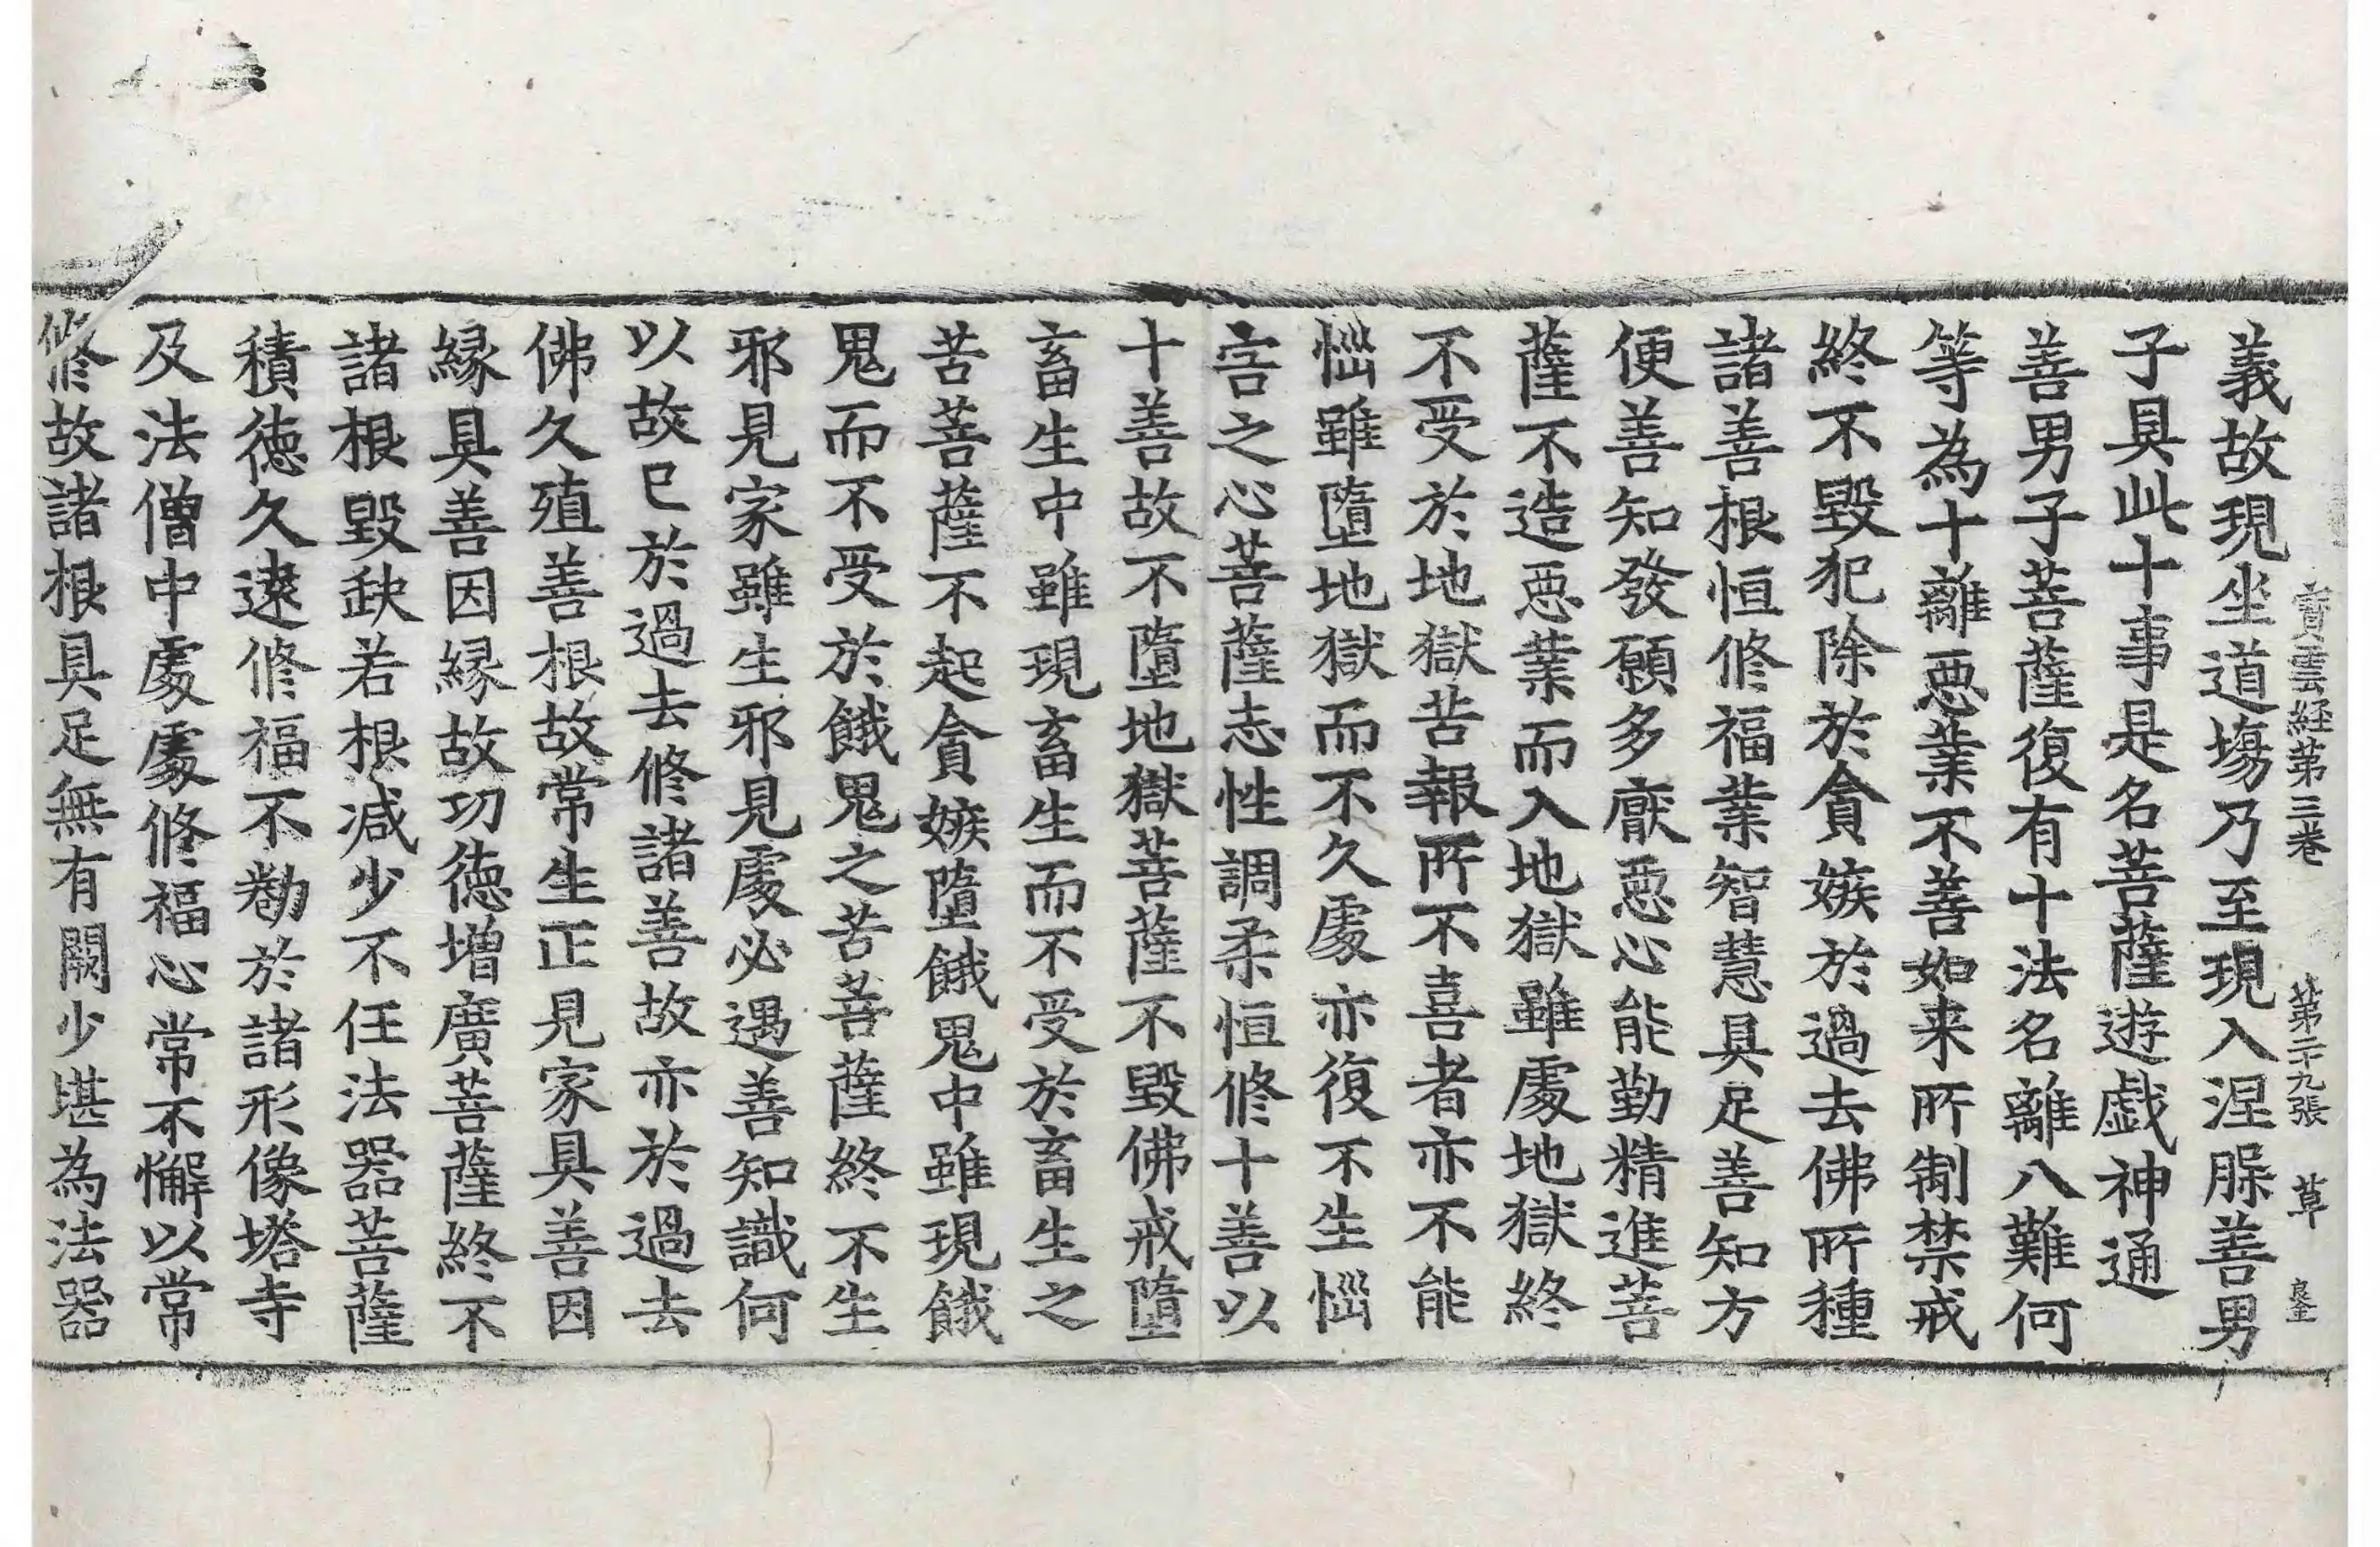 寳雲経第三巻 第二十九張 草 良全
義故現坐道場乃至現入涅脲善男
子具此十事是名菩薩遊戯神通
善男子菩薩復有十法名離八難何
等為十離惡業不善如来所制禁戒
終不毀犯除於貪嫉於過去佛所種
諸善根恒修福業智慧具足善知方
便善知發願多厭惡心能勤精進菩
薩不造惡業而入地獄雖處地獄終
不受於地獄苦報所不喜者亦不能
惱雖墮地獄而不久處亦復不生惱
害之心菩薩志性調柔恒修十善以
十善故不墮地獄菩薩不毀佛戒墮
畜生中雖現畜生而不受於畜生之
苦菩薩不起貪嫉墮餓鬼中雖現餓
鬼而不受於餓鬼之苦菩薩終不生
邪見家雖生邪見處必遇善知識何
以故已於過去修諸善故亦於過去
佛久殖善根故常生正見家具善因
縁具善因縁故功徳增廣菩薩終不
諸根毀缺若根減少不任法器菩薩
積徳久遠修福不勌於諸形像塔寺
及法僧中處處修福心常不懈以常
修故諸根具足無有闕少堪為法器